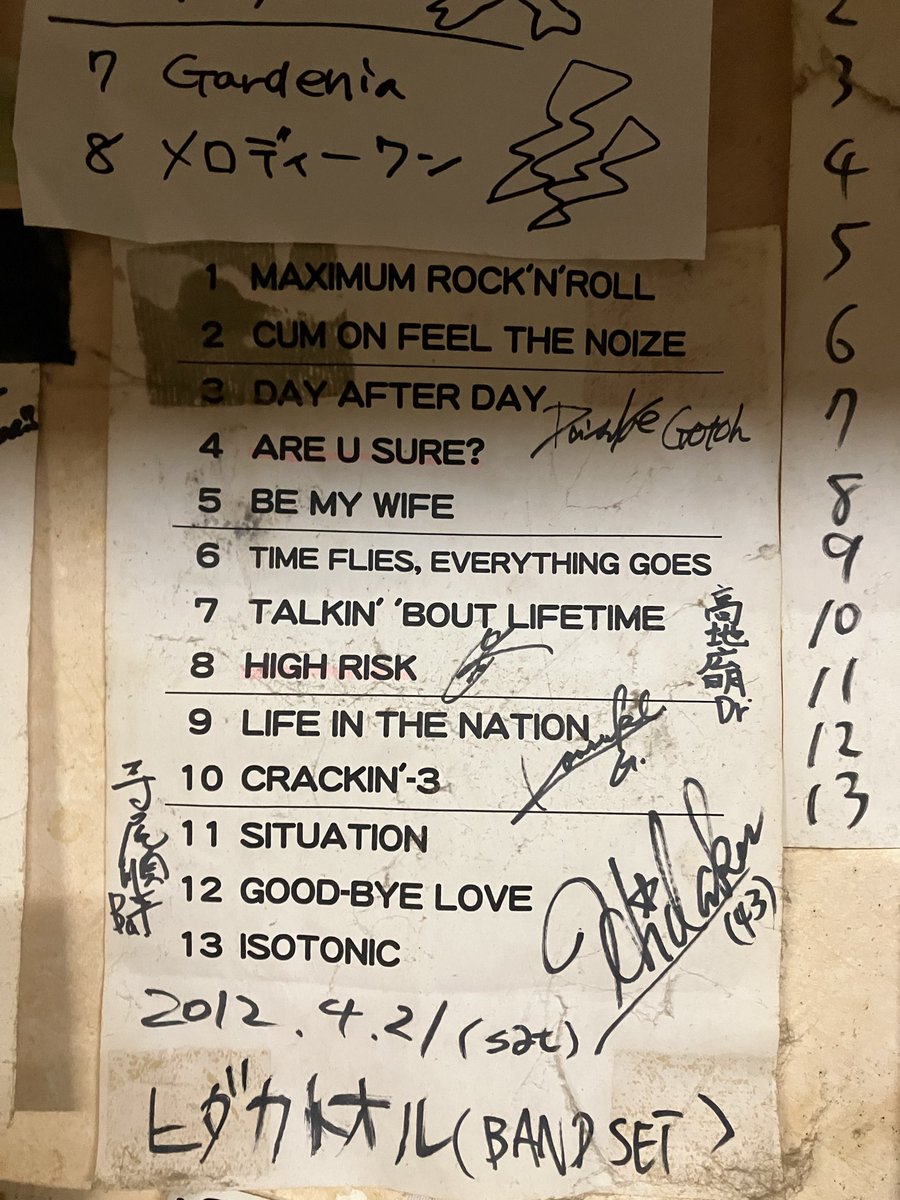 7 Gardenia
8 メロディーワン
1 MAXIMUM ROCK'N'ROLL
2 CUM ON FEEL THE NOIZE
3 DAY AFTER DAY
4 ARE U SURE?
Gotoh
5 BE MY WIFE
6 TIME FLIES, EVERYTHING GOES
7 TALKIN' 'BOUT LIFETIME
8 HIGH RISK
高地広明
Dr.
9 LIFE IN THE NATION
G.
10 CRACKIN'-3
11 SITUATION
12 GOOD-BYE LOVE
13 ISOTONIC
Hidaka
(43)
2012.4.21(sat)
ヒダカトオル(BAND SET)
2
3
4
5
6
7
8
9
10
11
12
13